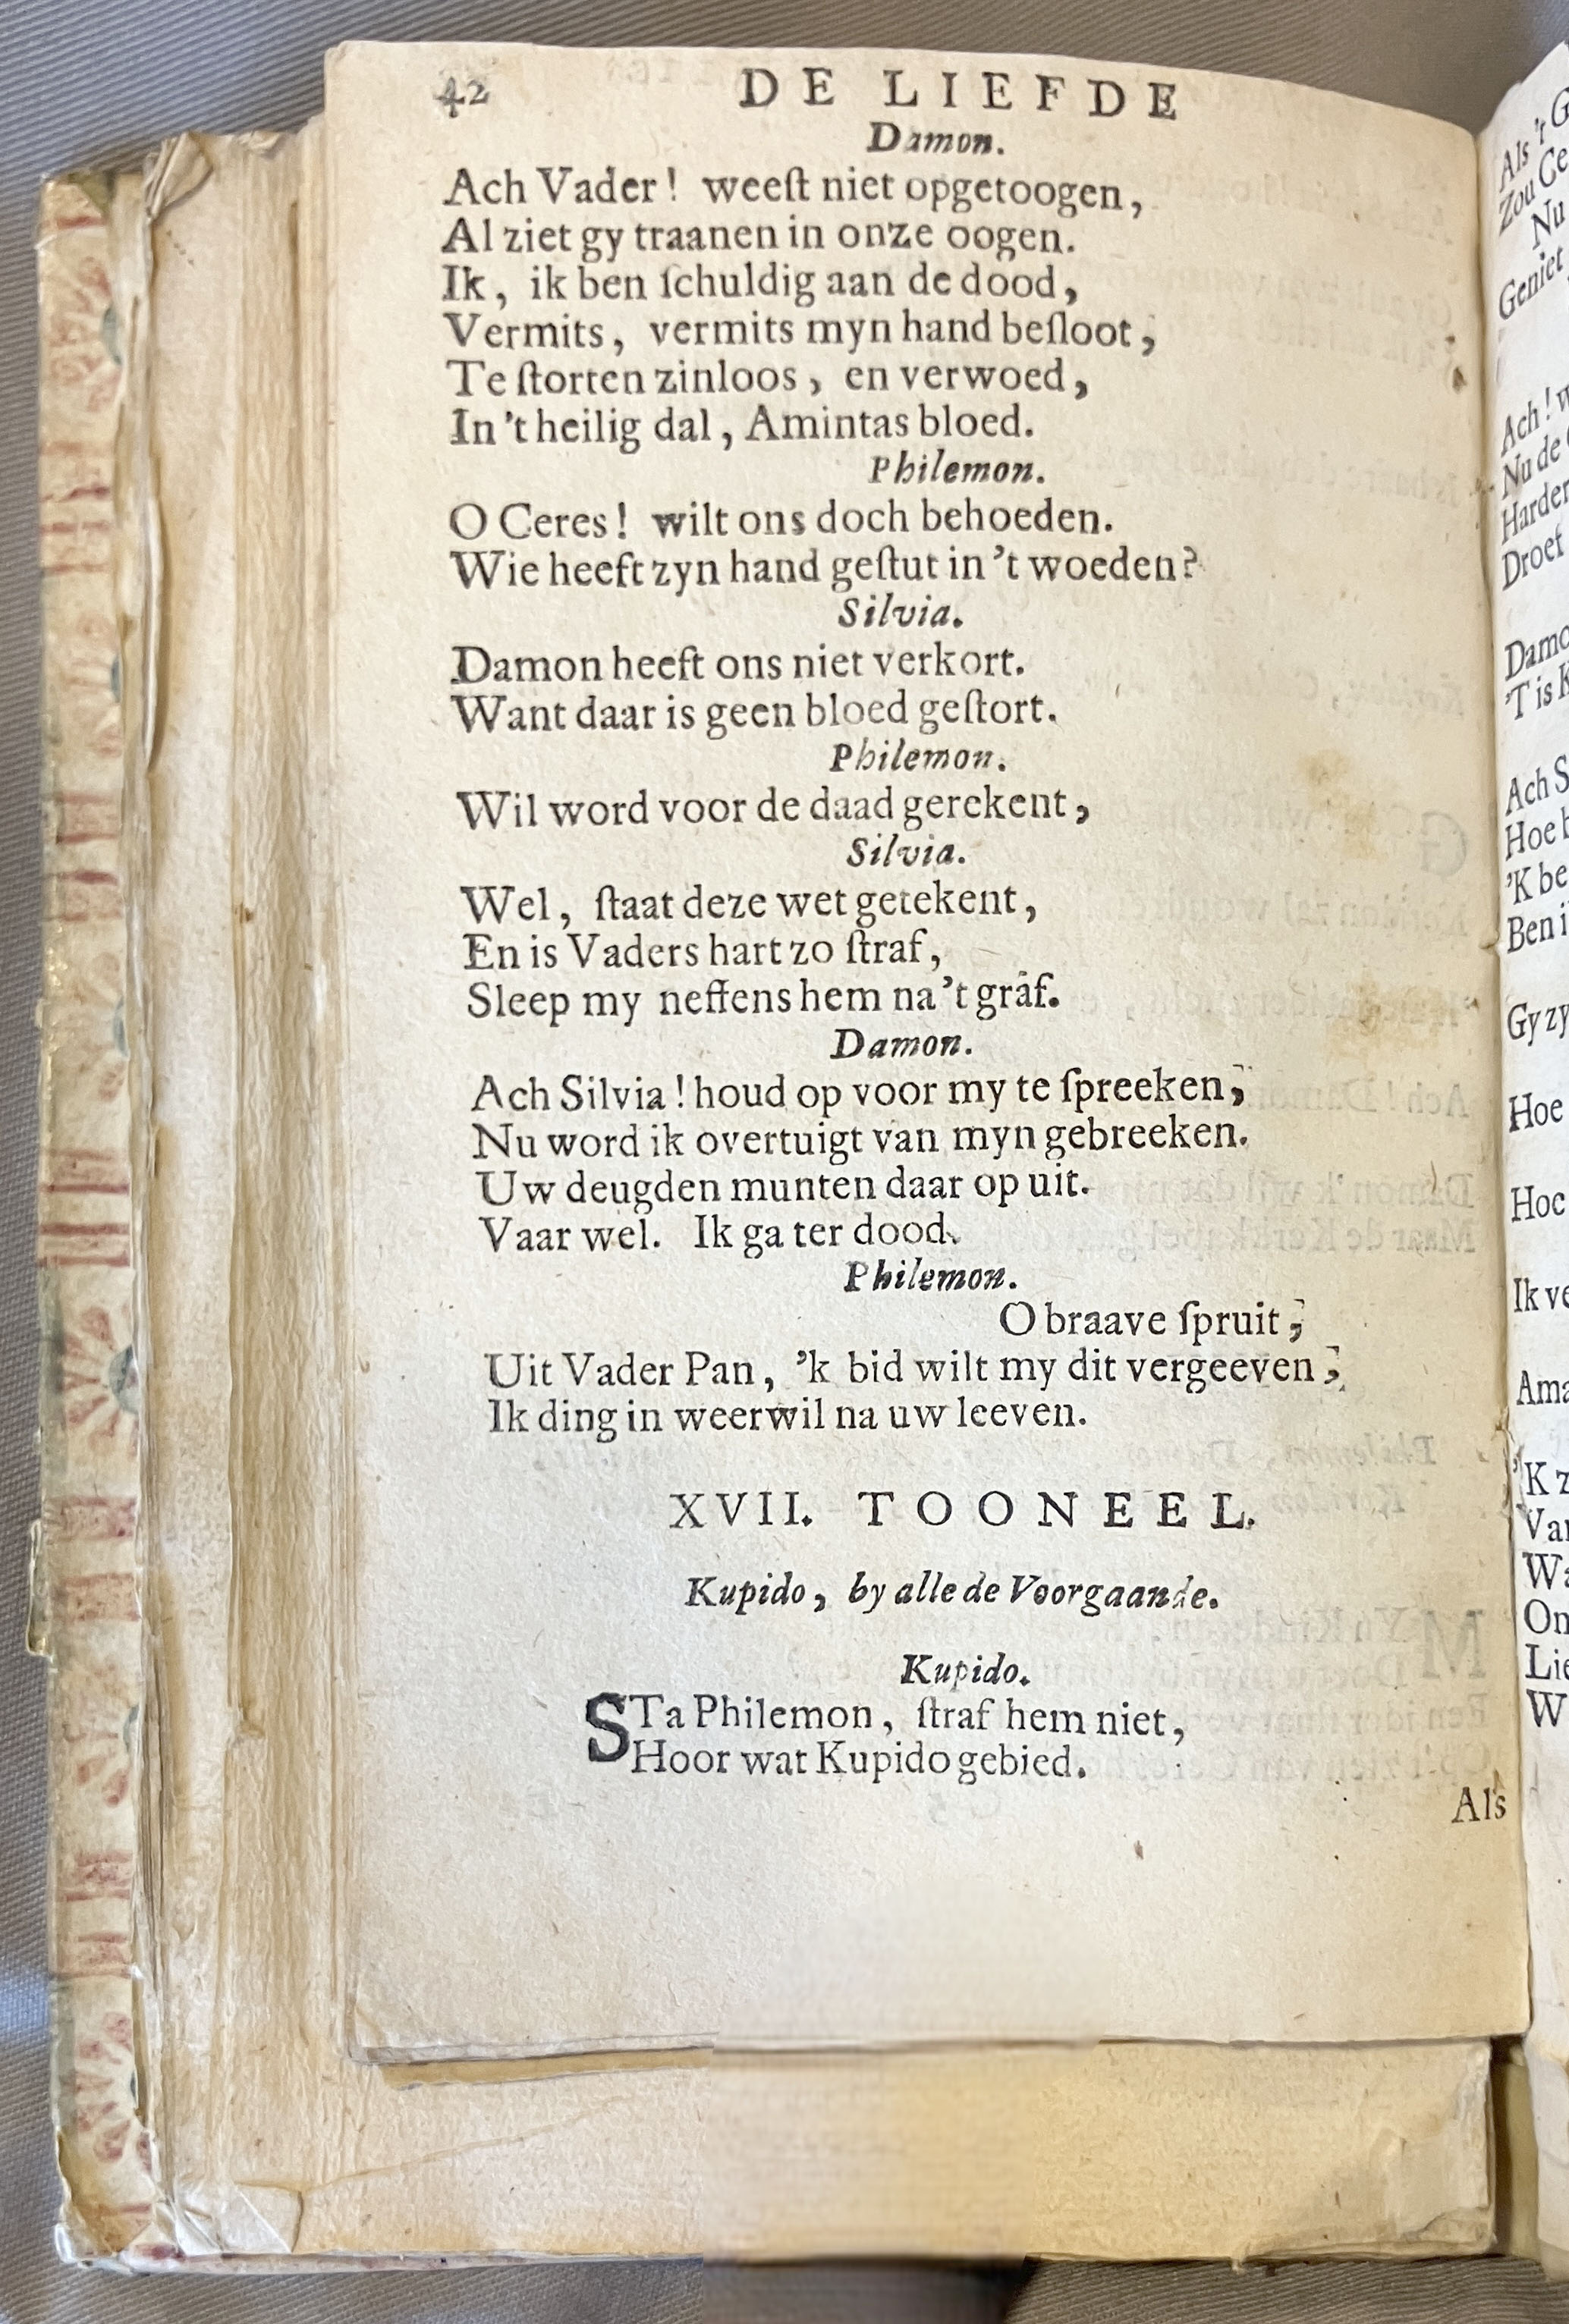 42 DE LIEFDE
Damon.
Ach Vader! weeſt niet opgetoogen,
Al ziet gy traanen in onze oogen.
Ik, ik ben ſchuldig aan de dood,
Vermits, vermits myn hand beſloot,
Te ſtorten zinloos, en verwoed,
In 't heilig dal, Amintas bloed.
Philemon.
O Ceres! wilt ons doch behoeden.
Wie heeft zyn hand geſtut in 't woeden?
Silvia.
Damon heeft ons niet verkort.
Want daar is geen bloed geſtort.
Philemon.
Wil word voor de daad gerekent,
Silvia.
Wel, ſtaat deze wet getekent,
En is Vaders hart zo ſtraf,
Sleep my neffens hem na 't graf.
Damon.
Ach Silvia! houd op voor my te ſpreeken,
Nu word ik overtuigt van myn gebreeken.
Uw deugden munten daar op uit.
Vaar wel. Ik ga ter dood.
Philemon.
O braave ſpruit,
Uit Vader Pan, 'k bid wilt my dit vergeeven,
Ik ding in weerwil na uw leeven.
XVII. TOONEEL.
Kupido, by alle de Voorgaande.
Kupido.
STa Philemon, ſtraf hem niet,
Hoor wat Kupido gebied.
Als
Als 't
Zou
Nu
Geniet
Ach!
Nu de
Droef
'T is
Ach
Hoe
'K be
Ben
Gy
Hoe
Ik
'K